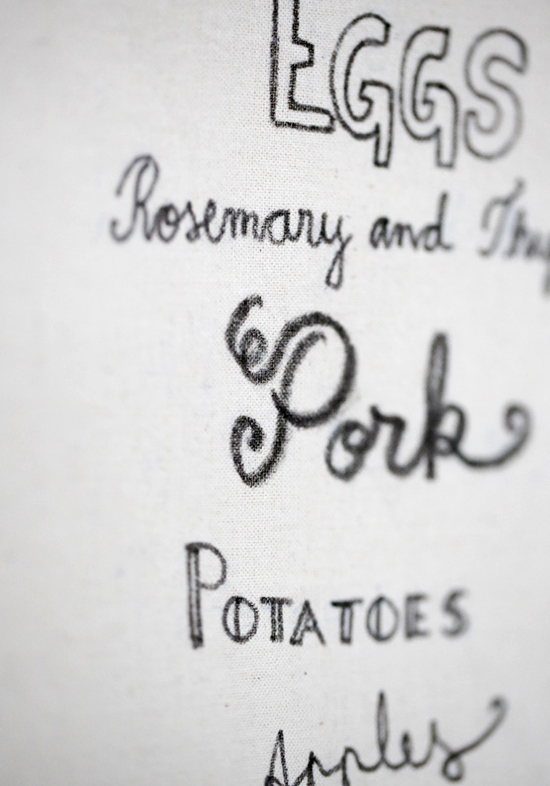 EGGS
Rosemary and Thy
Pork
POTATOES
Apples